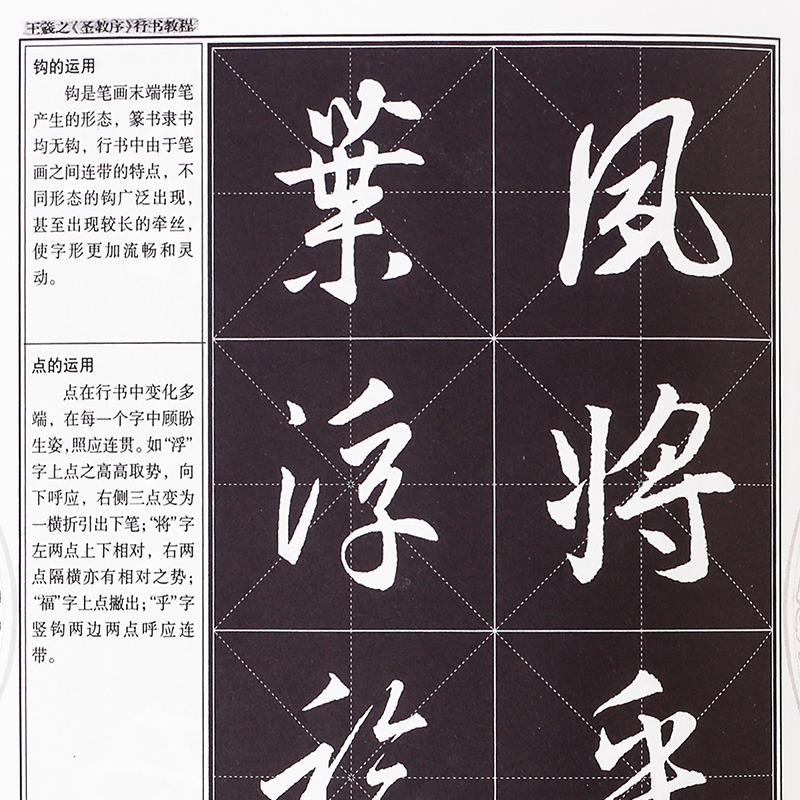 王羲之《圣教序》行书教程
钩的运用
钩是笔画末端带笔
产生的形态，篆书隶书
均无钩，行书中由于笔
画之间连带的特点，不
同形态的钩广泛出现，
甚至出现较长的牵丝，
使字形更加流畅和灵
动。
点的运用
点在行书中变化多
端，在每一个字中顾盼
生姿，照应连贯。如“浮”
字上点之高高取势，向
下呼应，右侧三点变为
一横折引出下笔；“将”字
左两点上下相对，右两
点隔横亦有相对之势；
“福”字上点撇出；“乎”字
竖钩两边两点呼应连
带。
葉 夙
浮 将
乎